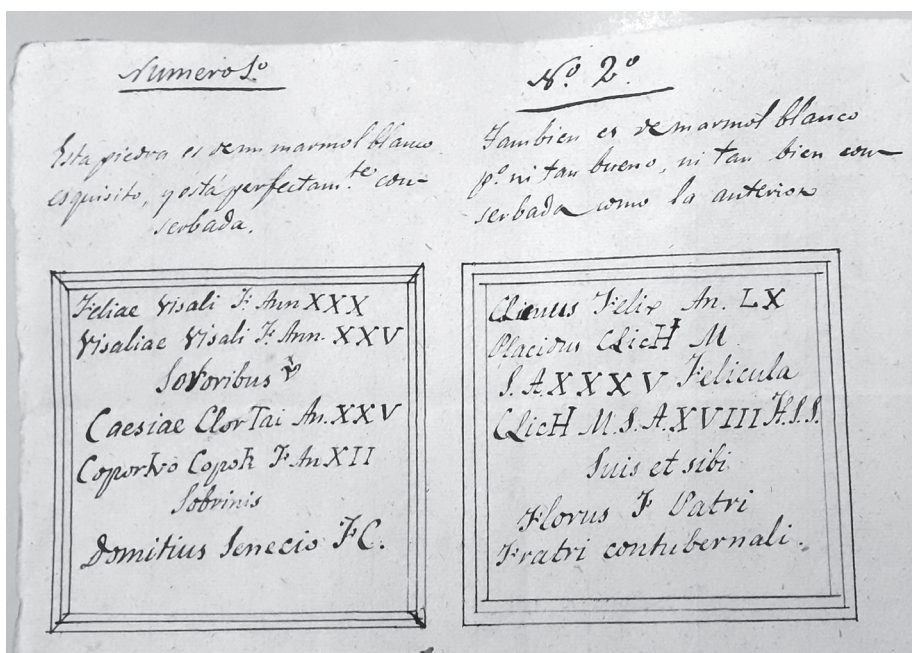 Numero 1.º
Esta piedra es de un marmol blanco
esquisito, y está perfectam.te con-
serbada.
Feliae Visali F. Ann XXX
Visaliae Visali F. Ann. XXV
Sororibus
Caesiae Clortai An. XXV
Coporivo Copori F An XII
Sobrinis
Domitius Senecio F C.
N.º 2.º
Tambien es de marmol blanco
p.º ni tan bueno, ni tan bien con-
serbada como la anterior
Felix An. LX
Placidus M
S. A. XXXV Felicula
M. S. A. XVIII H.S.S.
Suis et sibi
Florus F Patri
Fratri contubernali.